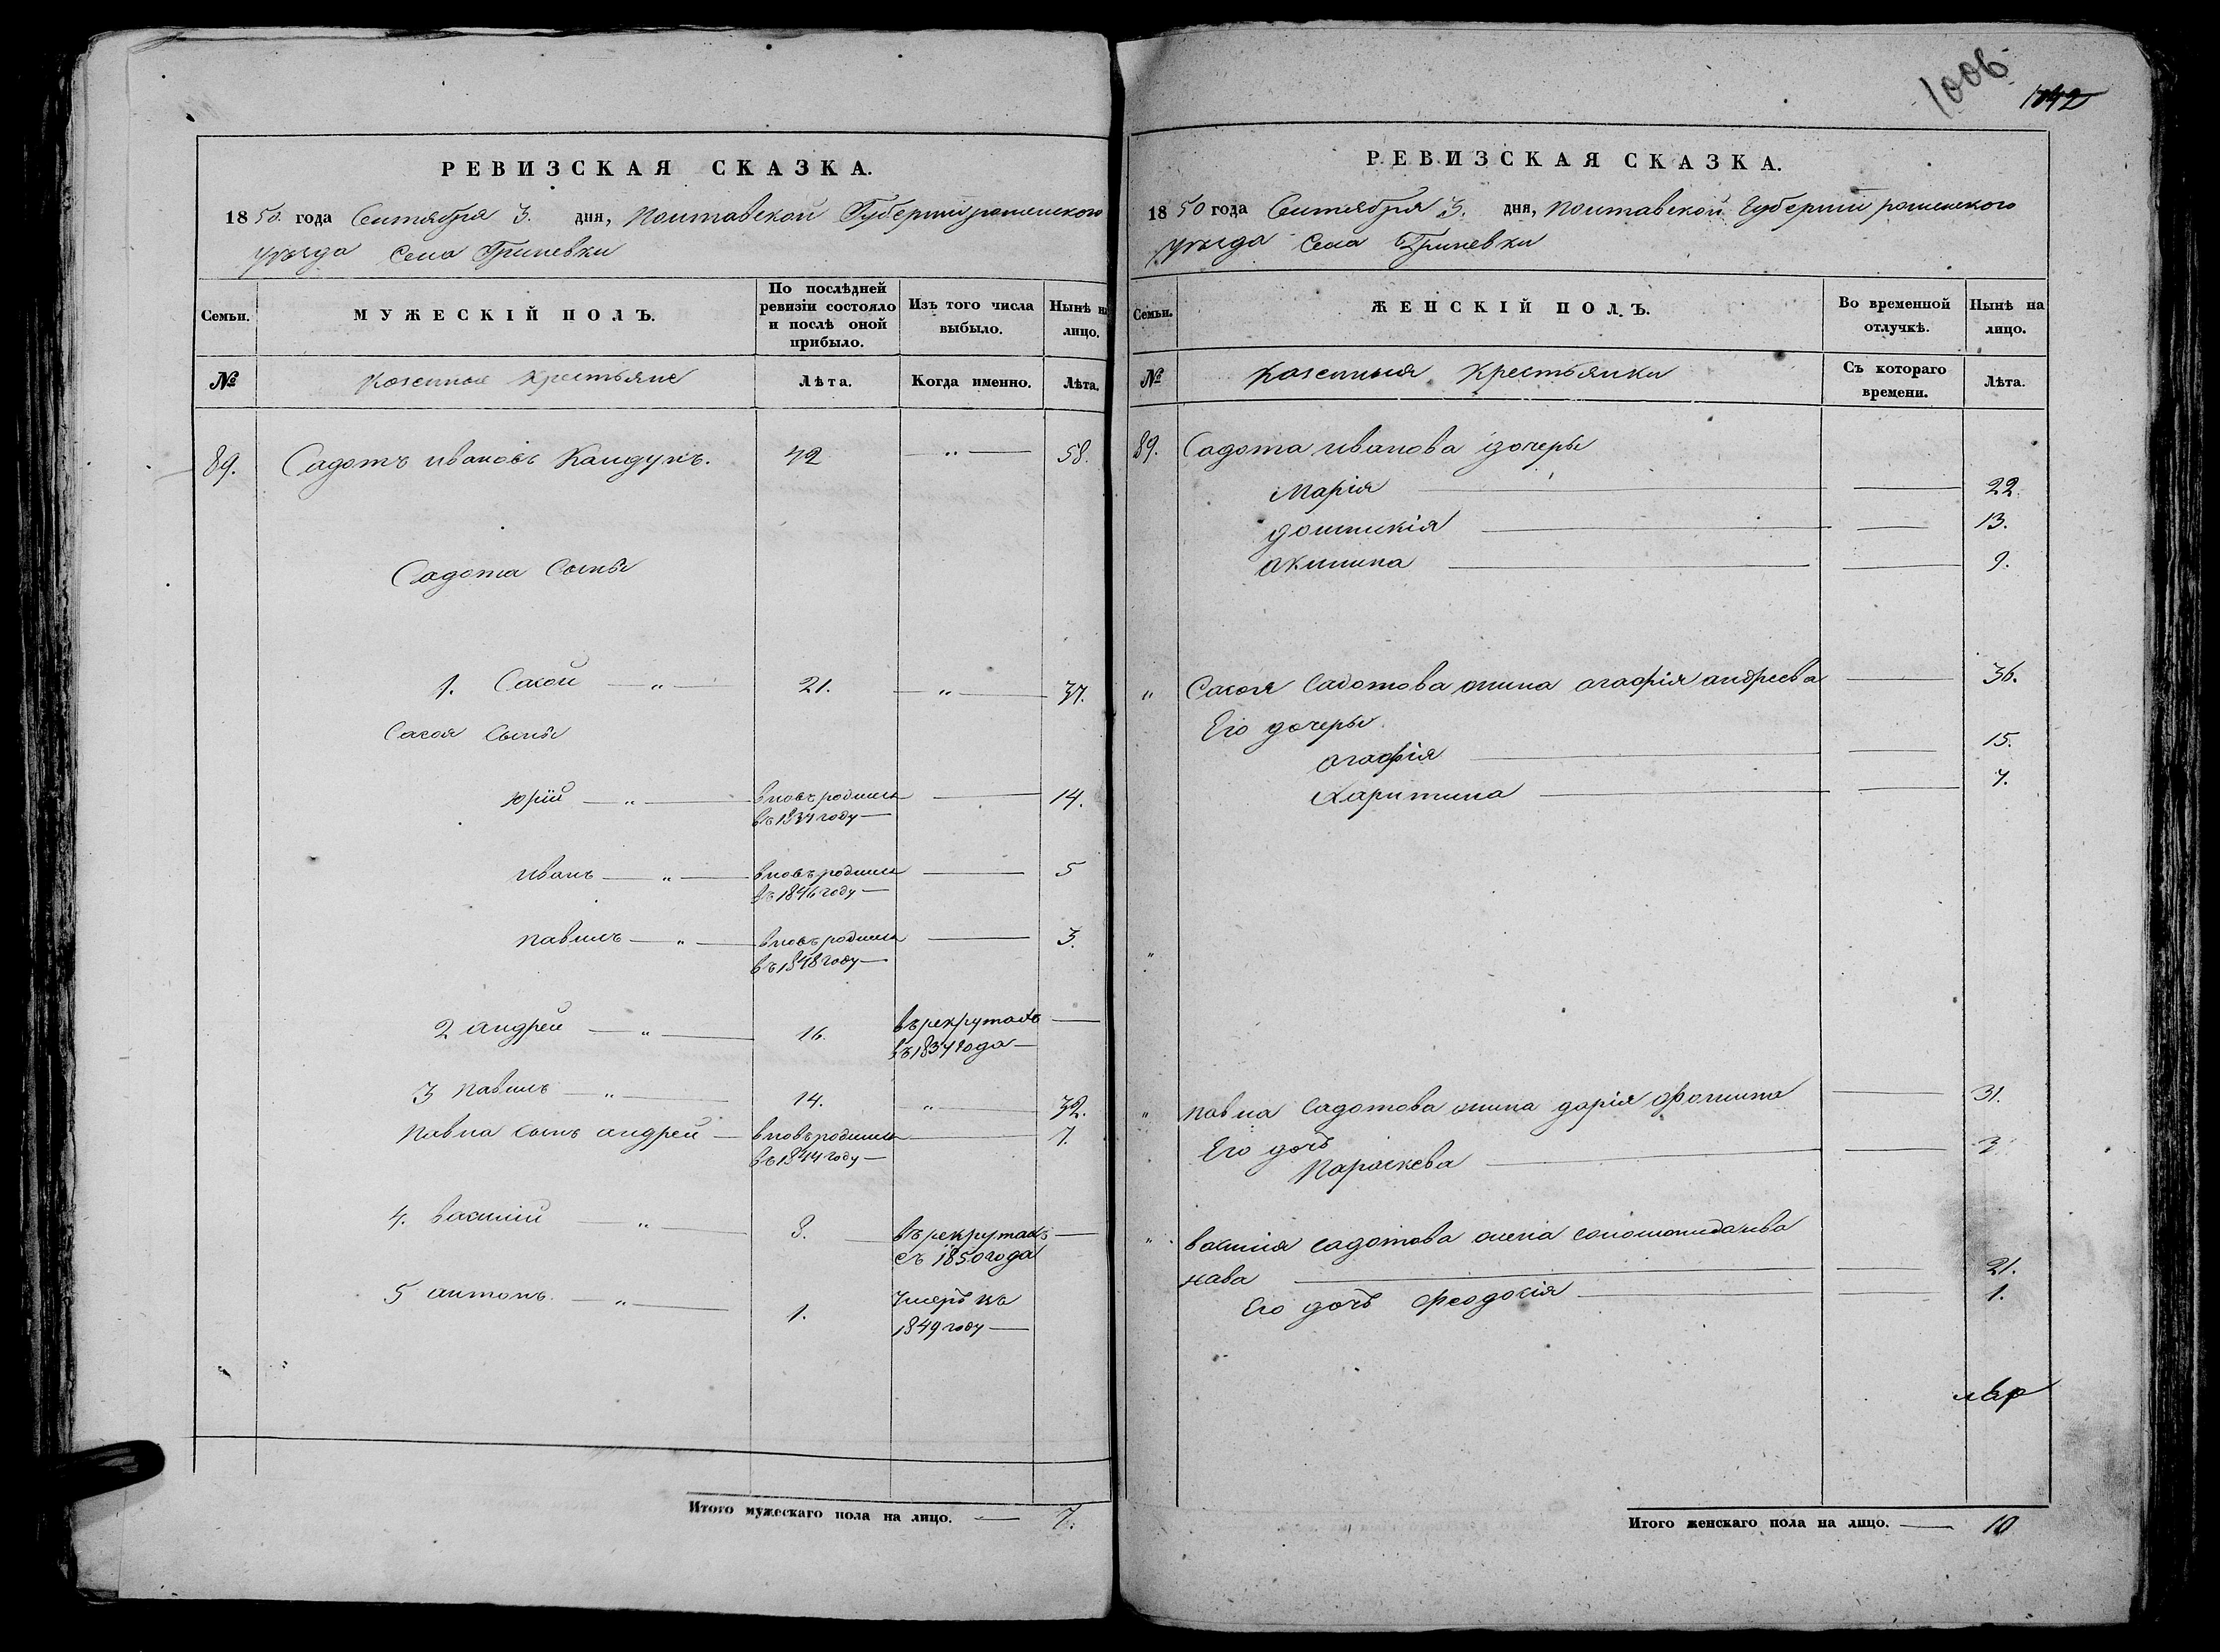 РЕВИЗСКАЯ СКАЗКА.
1850 года Сентября 3. дня, Полтавской Губернии роменского
уезда Села Гриневки
Семьи.
МУЖЕСКІЙ ПОЛЪ.
По послѣдней ревизіи состояло и послѣ оной прибыло.
Изъ того числа выбыло.
Нынѣ на лицо.
№
Казенные Крестьяне
Лѣта.
Когда именно.
Лѣта.
89. Садотъ ивановъ 42 „ — 58.
Садота Сыны
1. Сакой — „ — 21. — „ — 37.
Сакоя Сыны
юрій — „ — вновь родился — 14.
въ 1837 году —
иванъ — „ — вновь родился — 5
въ 1846 году —
павилъ — „ — вновь родился — 3.
въ 1848 году —
2 андрей — „ — 16. въ рекрутахъ —
въ 1837 года —
3 павилъ — „ — 14. „ — 32.
павла сынъ андрей — вновь родился — 7.
въ 1844 году —
4. василій — „ — 8. — въ рекрутахъ —
съ 1850 года
5 антонъ. — „ — 1. Умеръ въ
1849 году —
Итого мужескаго пола на лицо. — 7.
1006
1142
РЕВИЗСКАЯ СКАЗКА.
1850 года Сентября 3. дня, Полтавской Губернии роменского
уезда Села Гриневки
Семьи.
ЖЕНСКІЙ ПОЛЪ.
Во временной отлучкѣ.
Нынѣ на лицо.
№
Казенныя Крестьянки
Съ котораго времени.
Лѣта.
89. Садота иванова дочеры
Марія — — 22.
домникія — — 13.
акилина — — 9.
„ Сакоя Садотова жина агафія андреева — 36.
Его дочеры
агафія — — 15.
Харитина — — 7.
„
„ павла Садотова жина дарія фомина — 31.
Его дочь
Параскева — — 3
„ василія садотова жена
— — 21.
Его дочь феодосія — — 1.
Итого женскаго пола на лицо. — 10